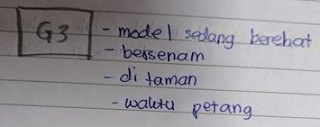 G3
- model sedang berehat
- bersenam
- di taman
- waktu petang